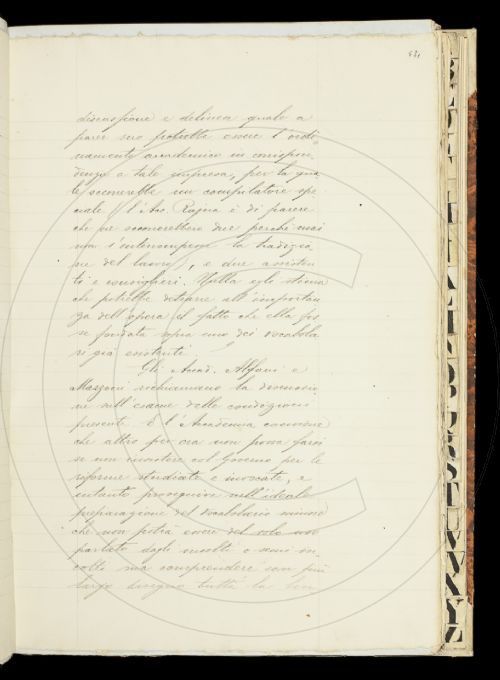 531
discussione e delinea quale a
parer suo potrebbe essere l'ordi
namento accademico in corrispon
denza a tale impresa, per la qua
le servirebbe un compilatore spe
ciale (l'Acc. Rajna è di parere
che ne occorrerebbero due perché mai
non s'interrompesse la tradizio
ne del lavoro), e due assisten
ti e consiglieri. Nulla egli stima
che potrebbe detrarre all'importan
za dell'opera il fatto che ella fos
se fondata sopra uno dei vocabola
ri già esistenti.
Gli Accad. Alfani e
Mazzoni richiamano la discussio
ne sull'esame delle condizioni
presenti. E l'Accademia conviene
che altro per ora non possa farsi
se non insistere col Governo per le
riforme studiate e invocate, e
intanto proseguire nell'ideale
preparazione del vocabolario minore
che non potrà essere del solo uso
parlato dagli incolti o semi in
colti ma comprendere con più
largo disegno tutta la lin
B
L
N
R
S
T
U
V
X
Y
Z